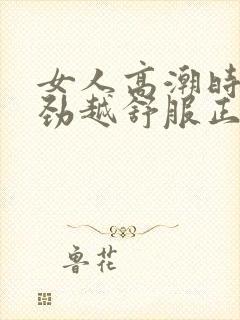 女人高潮时
劲越舒服正
鲁花